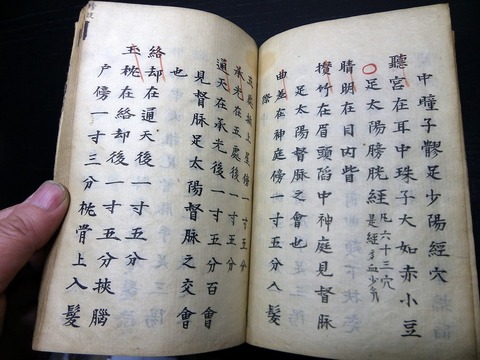 中瞳子髎足少陽經穴
聽宮在耳中珠子大如赤小豆
○足太陽膀胱經凡六十三穴
是經多血少氣
睛明在目內眥
攢竹在眉頭陷中神庭見督脈
足太陽督脈之會也
曲差在神庭傍一寸五分入髮
際
五處挾上星傍一寸五分
承光在五處後一寸五分
通天在承光後一寸五分百會
見督脈足太陽督脈之交會
也
絡却在通天後一寸五分
玉枕在絡却後一寸五分挾腦
户傍一寸三分枕骨上入髮